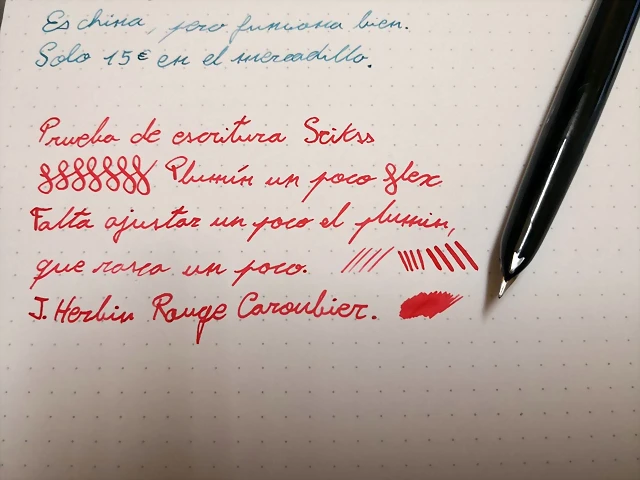 Es china, pero funciona bien.
Solo 15€ en el mercadillo.
Prueba de escritura Scikss
Plumín un poco flex
Falta ajustar un poco el plumin,
que rasca un poco.
J. Herbin Rouge Caroubier.